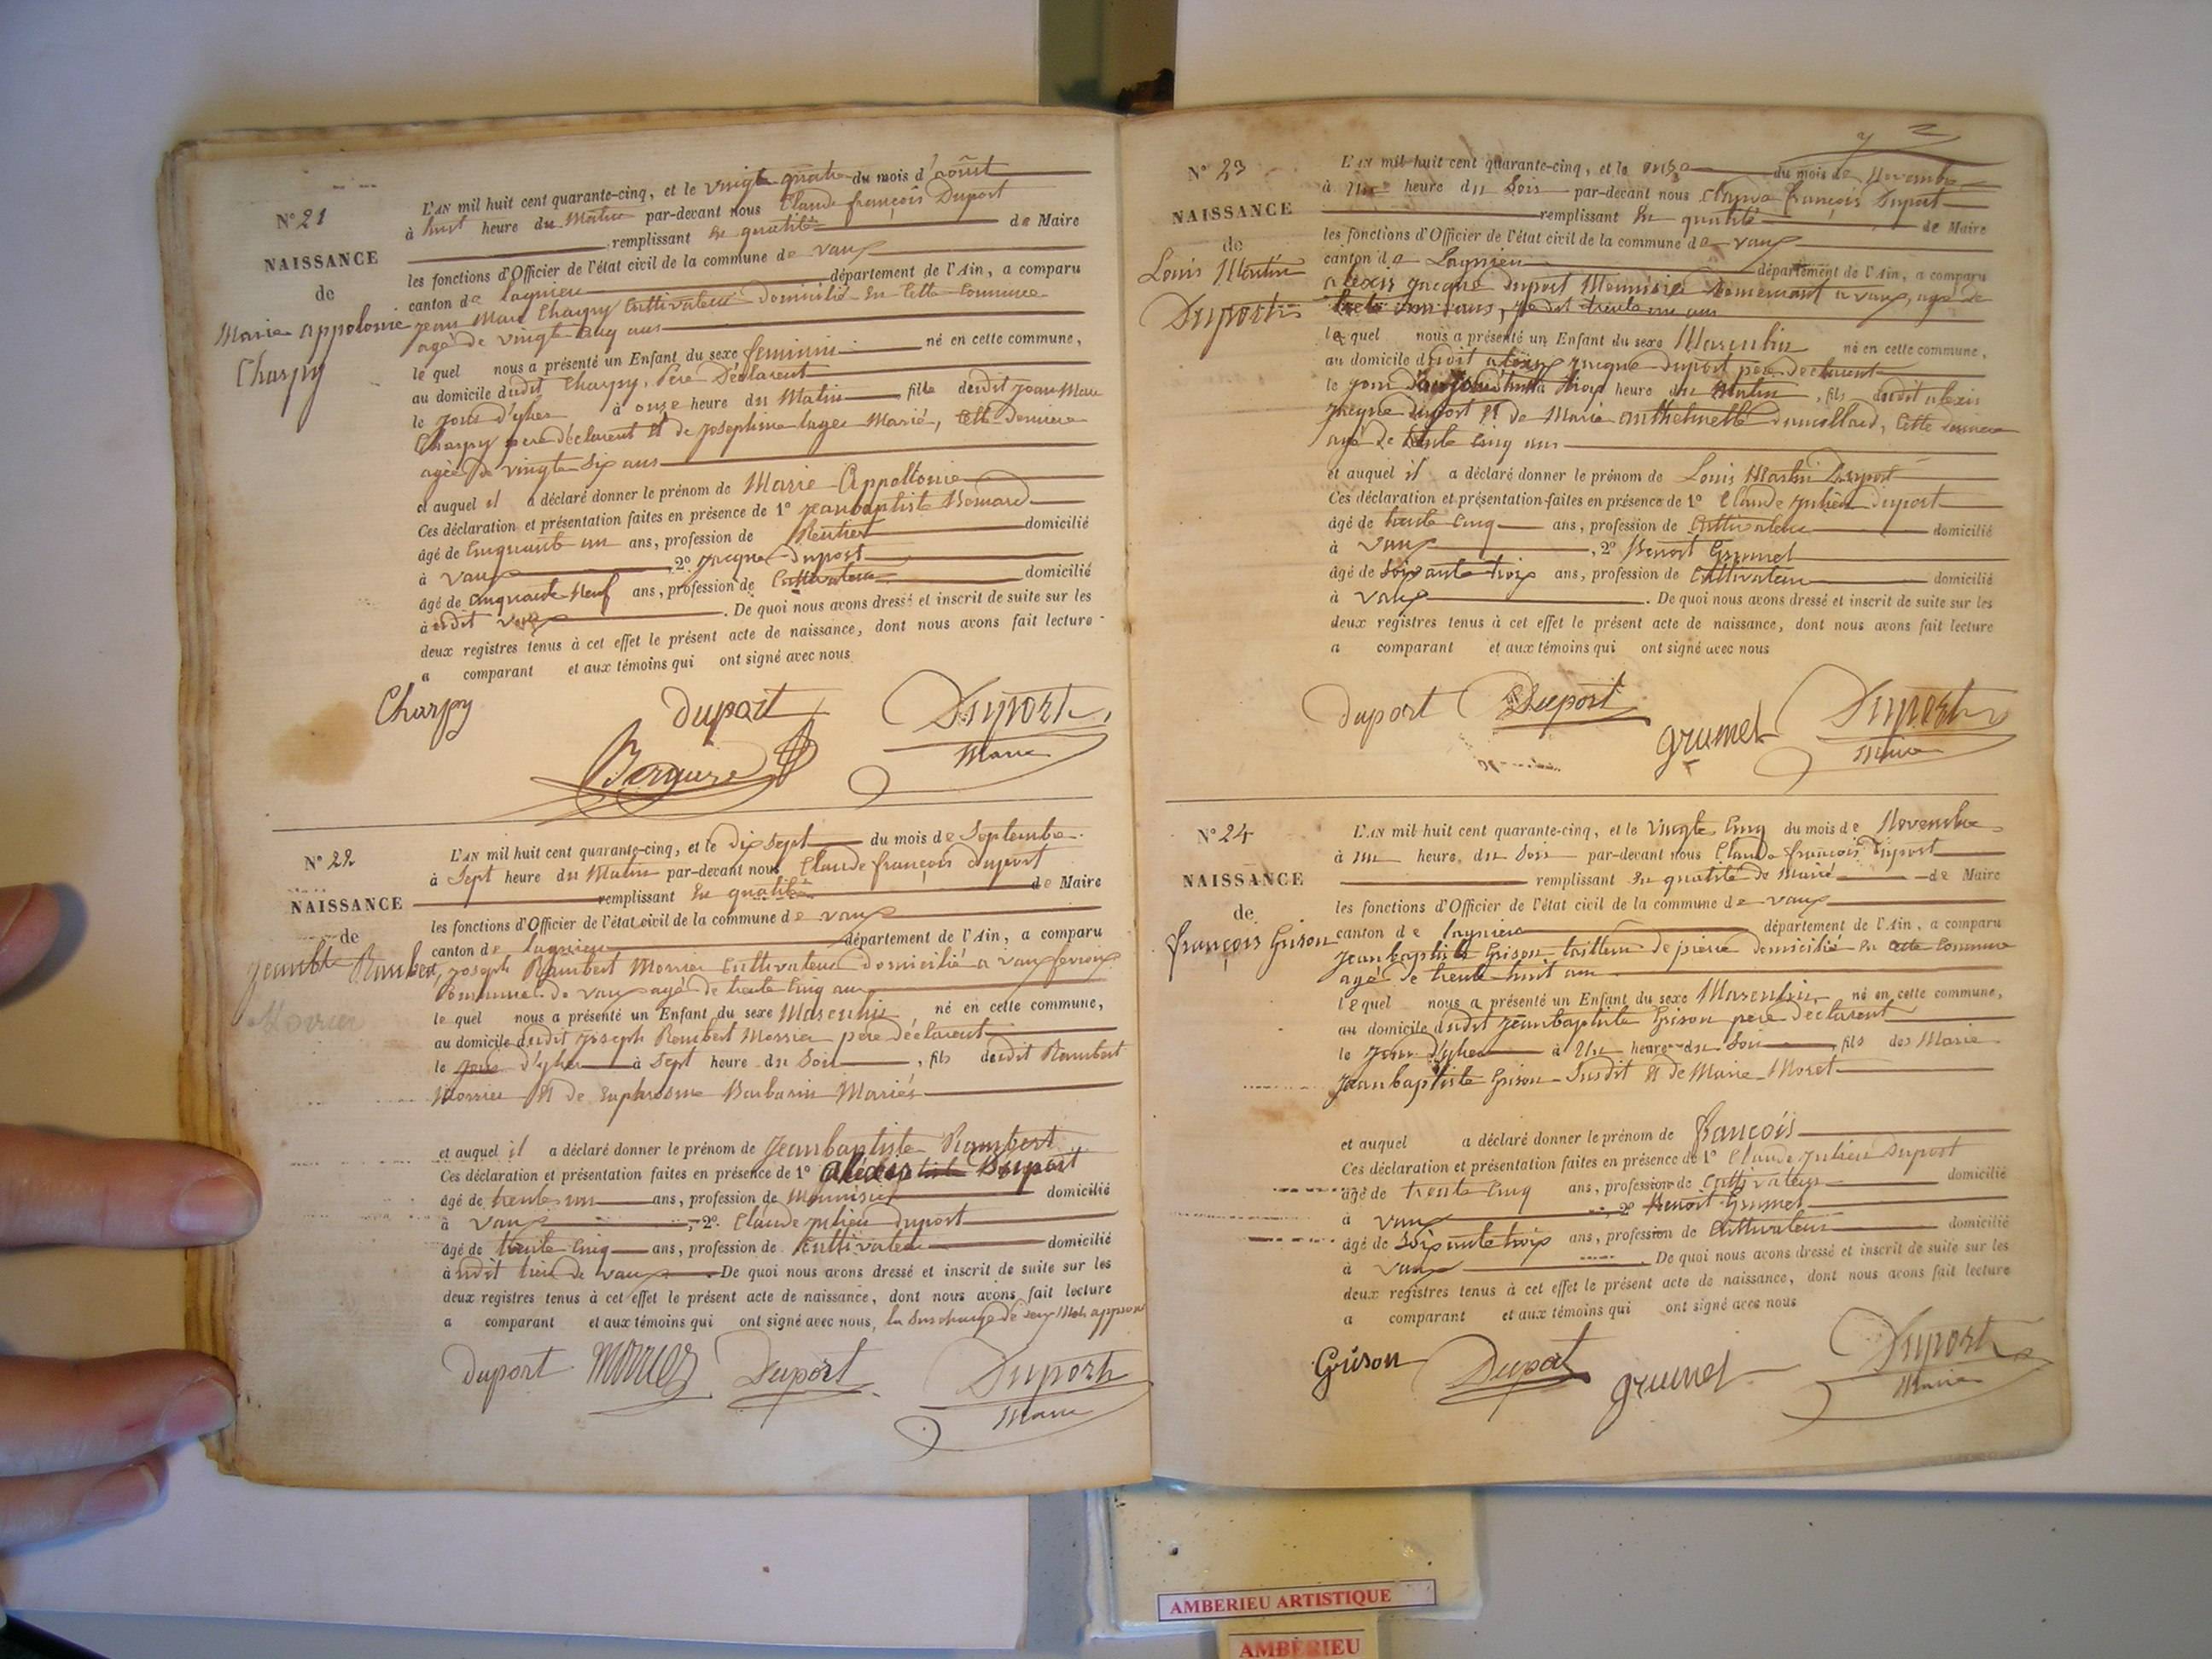 N° 21
NAISSANCE
de
Marie appolonie
Charpy
L'AN mil huit cent quarante-cinq, et le vingt quatre du mois d'aôust
à huit heure du Matin par-devant nous Claude françois Duport
remplissant En qualité de Maire
les fonctions d'Officier de l'état civil de la commune de vaux
canton de lagnieu département de l'Ain, a comparu
jean Marc Charpy Cultivateur domicilié En Cette Commune
agé de vingt Cinq ans
le quel nous a présenté un Enfant du sexe feminin né en cette commune,
au domicile dudit Charpy, Père Déclarent
le jour d'yher à onze heure du Matin fille dudit jean Marc
Charpy pere déclarent Et de josephine Marié, Cette derniere
agée de vingt Six ans
et auquel il a déclaré donner le prénom de Marie Appollonie
Ces déclaration et présentation faites en présence de 1° jeanbaptiste
âgé de Cinquante un ans, profession de Rentier domicilié
à vaux, 2° jacque duport
âgé de Cinquante Neuf ans, profession de Cultivateur domicilié
à udit vaux. De quoi nous avons dressé et inscrit de suite sur les
deux registres tenus à cet effet le présent acte de naissance, dont nous avons fait lecture
a comparant et aux témoins qui ont signé avec nous
Charpy duport Duport
Maire
N° 22
NAISSANCE
de
jeanbte Rambert
Morrier
L'AN mil huit cent quarante-cinq, et le dix Sept du mois de Septembre
à Sept heure du Matin par-devant nous Claude françois duport
remplissant En qualité de Maire
les fonctions d'Officier de l'état civil de la commune de vaux
canton de lagnieu département de l'Ain, a comparu
joseph Rambert Morrier Cultivateur domicilié a vaux fevroux
Commune de vaux agé de trente Cinq ans
le quel nous a présenté un Enfant du sexe Masculin né en cette commune,
au domicile dudit joseph Rambert Morrier père déclarent
le jour d'yher à Sept heure du Soir, fils dudit Rambert
Morrier Et de Euphrosine Barbarin Mariés
et auquel il a déclaré donner le prénom de jeanbaptiste Rambert
Ces déclaration et présentation faites en présence de 1° Duport
âgé de trente un ans, profession de Menuisier domicilié
à vaux, 2° Claude julien duport
âgé de trente Cinq ans, profession de Cultivateur domicilié
à udit lieu de vaux. De quoi nous avons dressé et inscrit de suite sur les
deux registres tenus à cet effet le présent acte de naissance, dont nous avons fait lecture
a comparant et aux témoins qui ont signé avec nous, la Surcharge de
Duport Morrier Duport Duport
Maire
N° 23
NAISSANCE
de
Louis Martin
Duport
L'AN mil huit cent quarante-cinq, et le onze du mois de Novembre
à Une heure du Soir par-devant nous Claude françois Duport
remplissant En qualité de Maire
les fonctions d'Officier de l'état civil de la commune de vaux
canton de Lagnieu département de l'Ain, a comparu
alexis jacque duport Menuisier demeurant a vaux, agé de
trente un ans
le quel nous a présenté un Enfant du sexe Masculin né en cette commune,
au domicile dudit alexis jacque duport père declarent
le jour d'aujourd'hui à trois heure du Matin, fils dudit alexis
jacque duport Et de Marie anthelmette, Cette derniere
agé de trente Cinq ans
et auquel il a déclaré donner le prénom de Louis Martin Duport
Ces déclaration et présentation faites en présence de 1° Claude julien duport
âgé de trente Cinq ans, profession de Cultivateur domicilié
à vaux, 2° Benoit Grumet
âgé de Soixante trois ans, profession de Cultivateur domicilié
à vaux. De quoi nous avons dressé et inscrit de suite sur les
deux registres tenus à cet effet le présent acte de naissance, dont nous avons fait lecture
a comparant et aux témoins qui ont signé avec nous
duport Duport grumet Duport
Maire
N° 24
NAISSANCE
de
françois Grison
L'AN mil huit cent quarante-cinq, et le Vingt Cinq du mois de Novembre
à un heure du Soir par-devant nous Claude françois Duport
remplissant En qualité de Maire de Maire
les fonctions d'Officier de l'état civil de la commune de vaux
canton de lagnieu département de l'Ain, a comparu
jeanbaptiste Grison tailleur de pierre domicilié En Cette Commune
agé de trente huit ans
lequel nous a présenté un Enfant du sexe Masculin né en cette commune,
au domicile dudit jeanbaptiste Grison pere declarent
le jour d'yher à Une heure du Soir, fils des Marie
jeanbaptiste Grison Susdit Et de Marie Moret
et auquel a déclaré donner le prénom de françois
Ces déclaration et présentation faites en présence de 1° Claude julien Duport
âgé de trente Cinq ans, profession de Cultivateur domicilié
à vaux, 2° Benoit Grumet
âgé de Soixante trois ans, profession de Cultivateur domicilié
à vaux. De quoi nous avons dressé et inscrit de suite sur les
deux registres tenus à cet effet le présent acte de naissance, dont nous avons fait lecture
a comparant et aux témoins qui ont signé avec nous
Grison Duport grumet Duport
Maire
AMBERIEU ARTISTIQUE
AMBÉRIEU